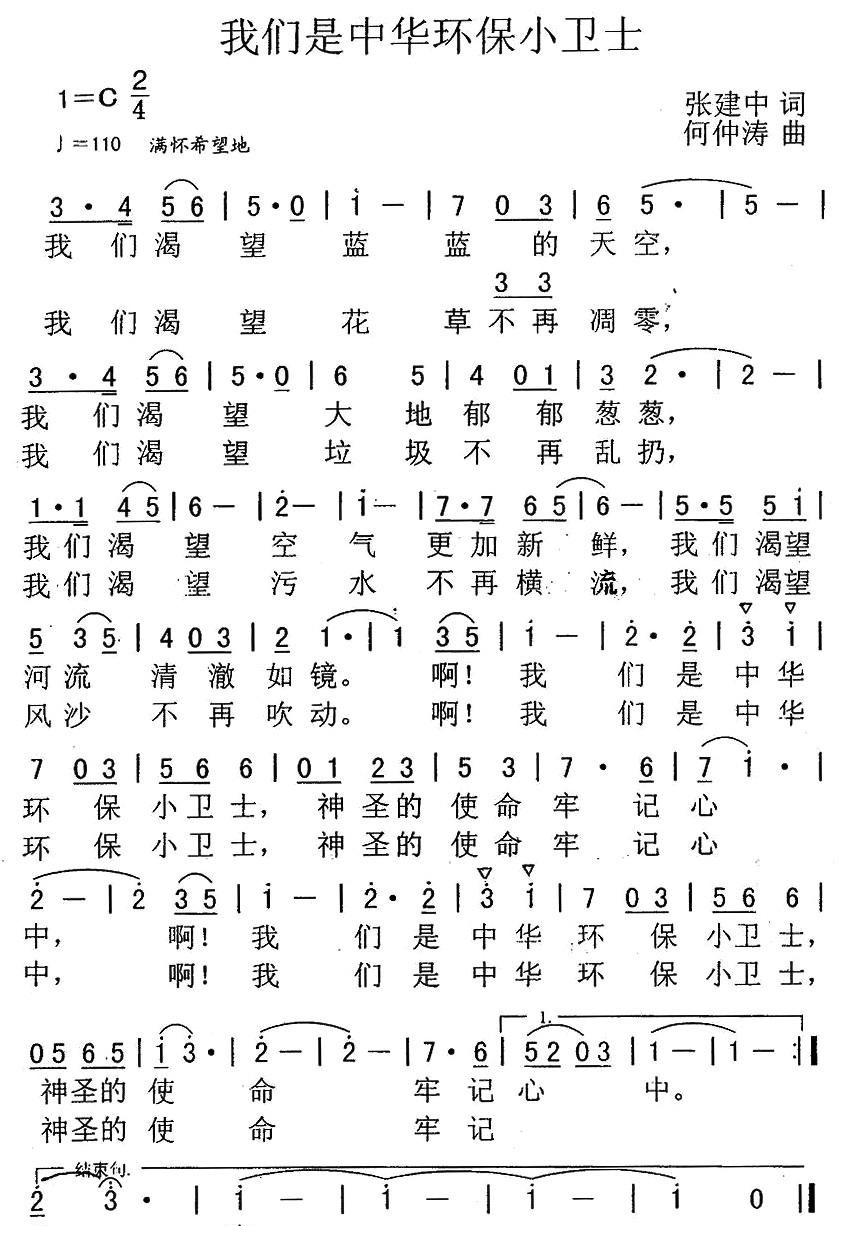 我们是中华环保小卫士
1=C 2/4
张建中 词
♩=110 满怀希望地
何仲涛 曲
3 · 4 5 6 | 5 · 0 | i — | 7 0 3 | 6 5 · | 5 — |
我 们 渴 望 蓝 蓝 的 天 空，
3 3
我 们 渴 望 花 草 不 再 凋 零，
3 · 4 5 6 | 5 · 0 | 6 5 | 4 0 1 | 3 2 · | 2 — |
我 们 渴 望 大 地 郁 郁 葱 葱，
我 们 渴 望 垃 圾 不 再 乱 扔，
1 · 1 4 5 | 6 — | 2̇ — | i — | 7 · 7 6 5 | 6 — | 5 · 5 5 i |
我 们 渴 望 空 气 更 加 新 鲜， 我 们 渴望
我 们 渴 望 污 水 不 再 横 流， 我 们 渴望
5 3 5 | 4 0 3 | 2 1 · | 1 3 5 | i — | 2̇ · 2̇ | 3̇ i |
河 流 清 澈 如 镜。 啊！ 我 们 是 中 华
风 沙 不 再 吹 动。 啊！ 我 们 是 中 华
7 0 3 | 5 6 6 | 0 1 2 3 | 5 3 | 7 · 6 | 7 i · |
环 保 小 卫 士， 神 圣 的 使 命 牢 记 心
环 保 小 卫 士， 神 圣 的 使 命 牢 记 心
2̇ — | 2̇ 3 5 | i — | 2̇ · 2̇ | 3̇ i | 7 0 3 | 5 6 6 |
中， 啊！ 我 们 是 中 华 环 保 小 卫 士，
中， 啊！ 我 们 是 中 华 环 保 小 卫 士，
1.
0 5 6 5 | i 3̇ · | 2̇ — | 2̇ — | 7 · 6 | 5 2 0 3 | 1 — | 1 — :|
神 圣 的 使 命 牢 记 心 中。
神 圣 的 使 命 牢 记
结束句.
2̇ 3̇ · | i — | i — | i — | i 0 ||